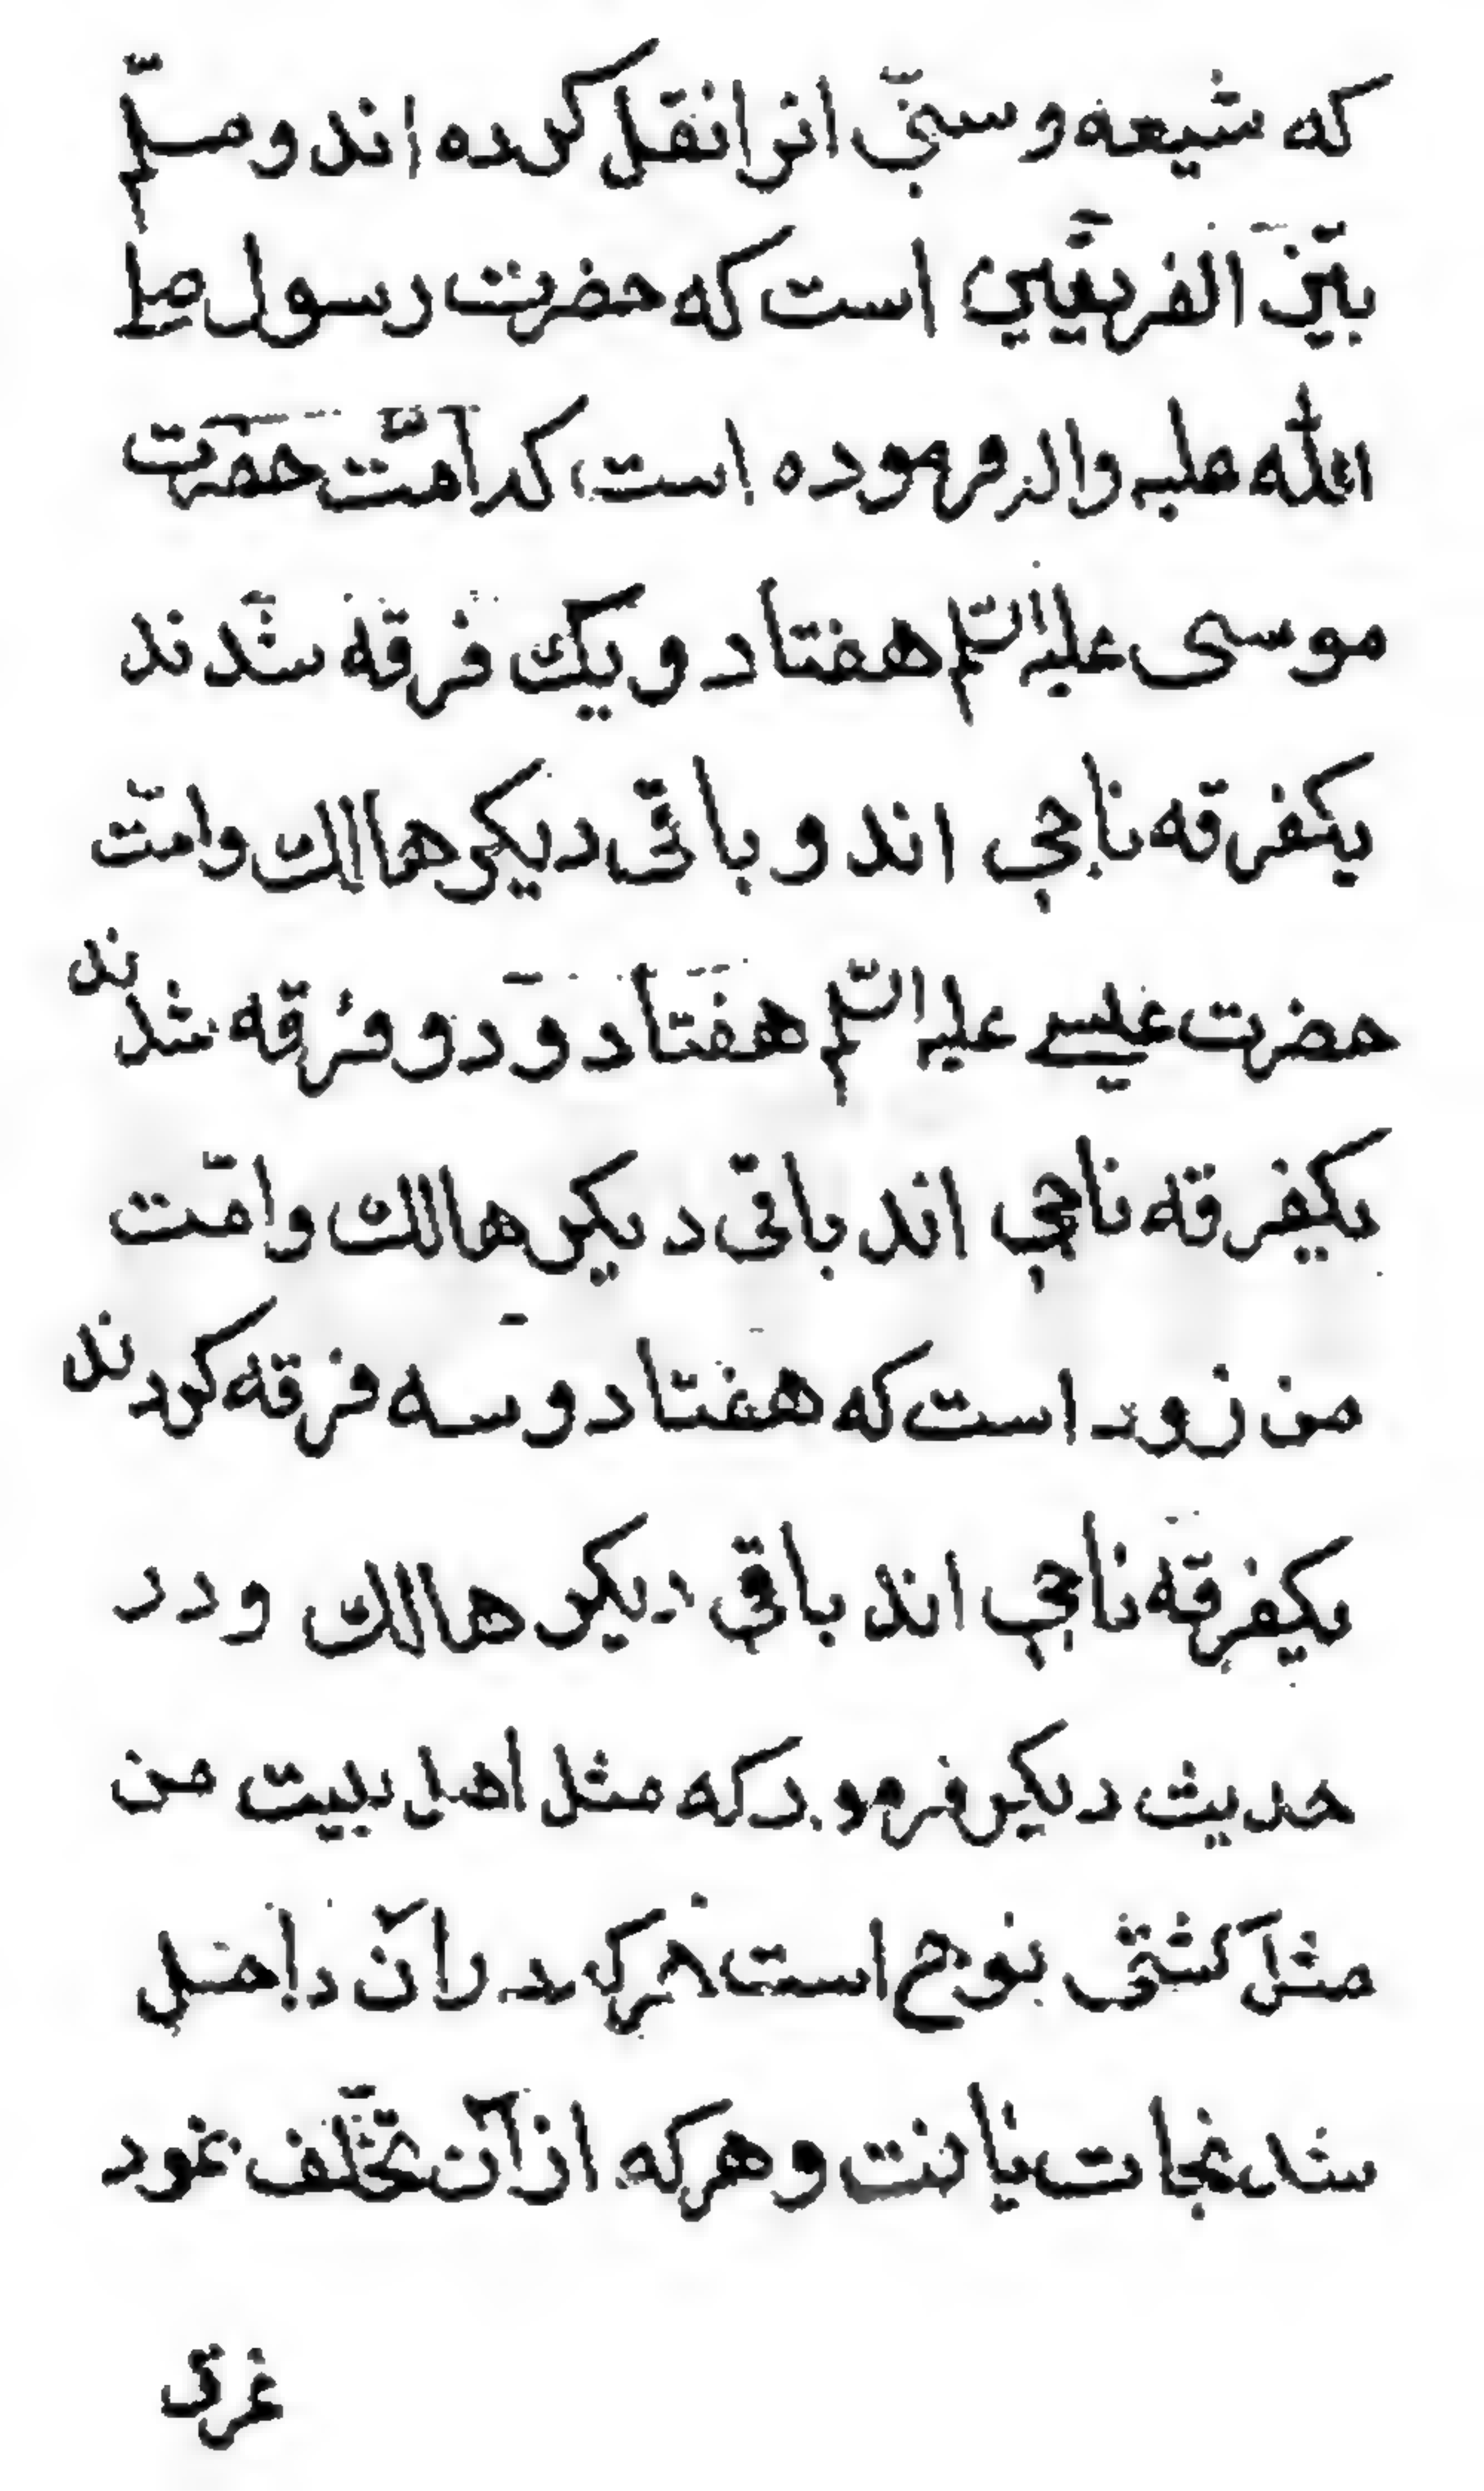 که شیعه و سنّی انرا نقل کرده اند و مسلّم
بین الفریقین است که حضرت رسول صلی
الله علیه واله فرموده است که امّت حضرت
موسی علیه السّلم هفتاد و یک فرقه شدند
یکفرقه ناجی اند و باقی دیکر هالک وامّت
حضرت عیسی علیه السّلم هفتاد و دو فرقه شدند
یکفرقه ناجی اند باقی دیکر هالک وامّت
من زود است که هفتاد و سه فرقه کردند
یکفرقه ناجی اند باقی دیکر هالک و در
حدیث دیکر فرمود که مثل اهل بیت من
مثل کشتی نوح است هرکه در آن داخل
شد نجات یافت و هرکه از آن تخلّف نمود
غرق